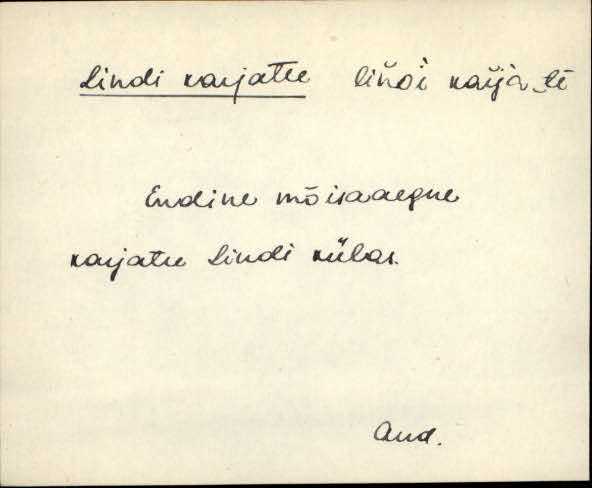 Lindi karjatee lińdi kaŕja‿tē
Endine mõisaaegne
karjatee Lindi külas.
Aud.